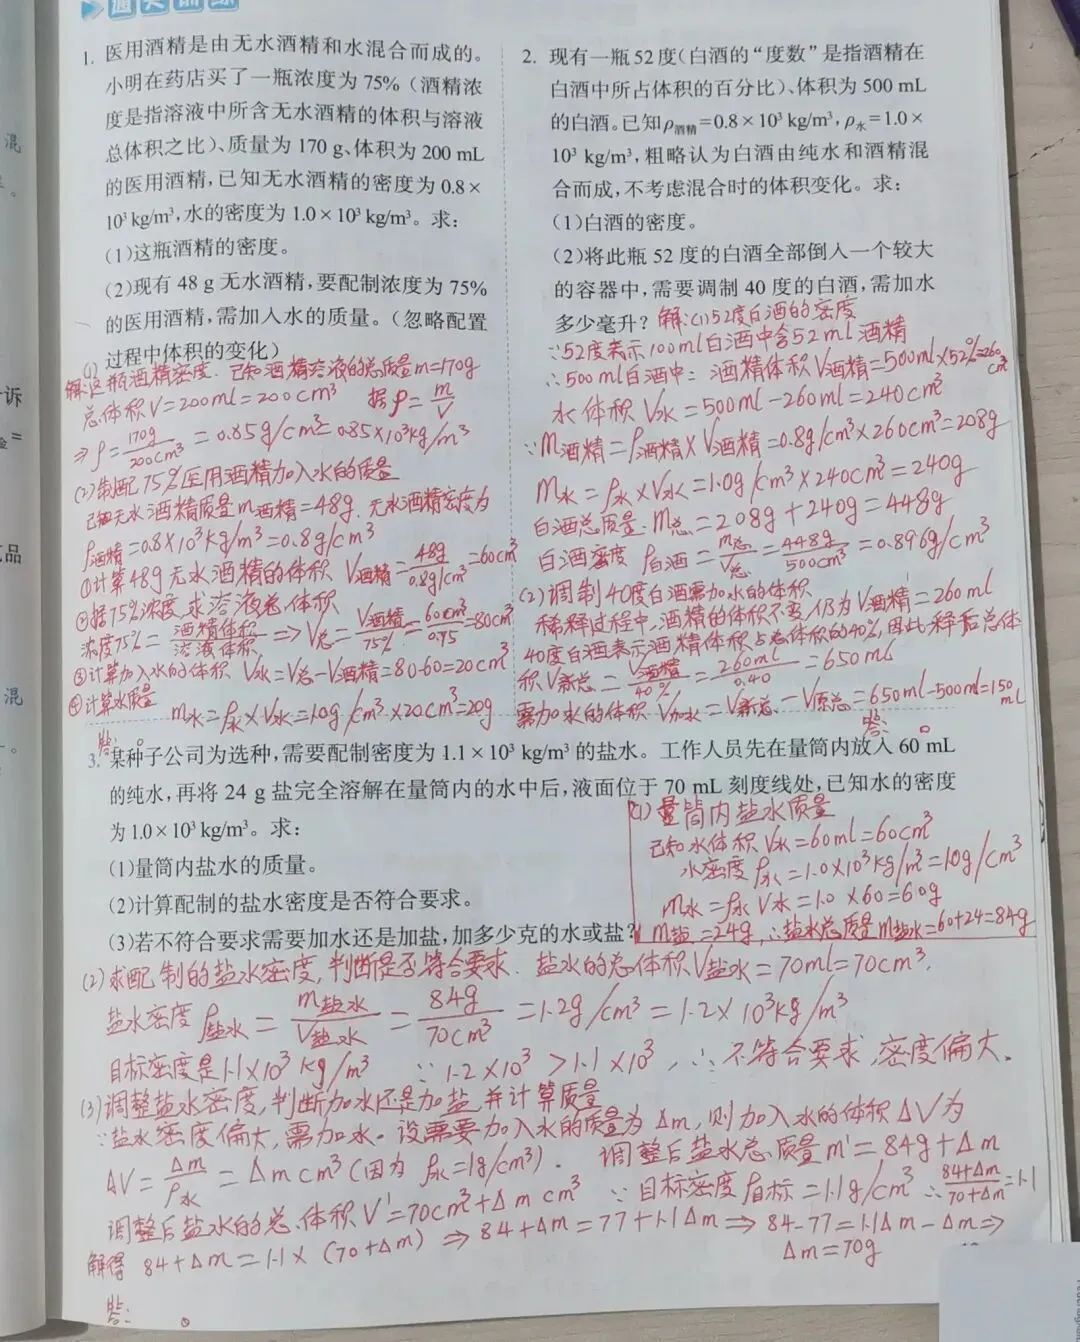 通关训练
1. 医用酒精是由无水酒精和水混合而成的。
小明在药店买了一瓶浓度为 75%（酒精浓
度是指溶液中所含无水酒精的体积与溶液
总体积之比）、质量为 170 g、体积为 200 mL
的医用酒精，已知无水酒精的密度为 0.8×
10³ kg/m³，水的密度为 1.0×10³ kg/m³。求：
(1)这瓶酒精的密度。
(2)现有 48 g 无水酒精，要配制浓度为 75%
的医用酒精，需加入水的质量。（忽略配置
过程中体积的变化）
(1)
解:这瓶酒精密度. 已知酒精溶液的总质量m=170g
总体积V=200ml=200cm³ 据ρ=m/V
⇒ρ=170g/200cm³=0.85g/cm³=0.85×10³kg/m³
(2)制配75%医用酒精加入水的质量
已知无水酒精质量m酒精=48g. 无水酒精密度为
ρ酒精=0.8×10³kg/m³=0.8g/cm³
①计算48g无水酒精的体积 V酒精=48g/0.8g/cm³=60cm³
②据75%浓度,求溶液总体积
浓度75%=酒精体积/溶液体积⇒V总=V酒精/75%=60cm³/0.75=80cm³
③计算加入水的体积 V水=V总-V酒精=80-60=20cm³
④计算水质量
m水=ρ水×V水=1.0g/cm³×20cm³=20g
答: 。
2. 现有一瓶 52 度（白酒的“度数”是指酒精在
白酒中所占体积的百分比）、体积为 500 mL
的白酒。已知ρ酒精=0.8×10³ kg/m³，ρ水=1.0×
10³ kg/m³，粗略认为白酒由纯水和酒精混
合而成，不考虑混合时的体积变化。求：
(1)白酒的密度。
(2)将此瓶 52 度的白酒全部倒入一个较大
的容器中，需要调制 40 度的白酒，需加水
多少毫升？ 解:(1)52度白酒的密度
∵52度表示100ml白酒中含52ml酒精
∴500ml白酒中：酒精体积V酒精=500ml×52%=260cm³
水体积V水=500ml-260ml=240cm³
∵m酒精=ρ酒精×V酒精=0.8g/cm³×260cm³=208g
m水=ρ水×V水=1.0g/cm³×240cm³=240g
白酒总质量.m总=208g+240g=448g
白酒密度 ρ白酒=m总/V总=448g/500cm³=0.896g/cm³
(2)调制40度白酒需加水的体积
稀释过程中,酒精的体积不变,仍为V酒精=260ml
40度白酒表示酒精体积占总体积的40%,因此稀释后总体
积V新总=V酒精/40%=260ml/0.40=650ml
需加水的体积 V加水=V新总-V原总=650ml-500ml=150mL
答: 。
3. 某种子公司为选种，需要配制密度为 1.1×10³ kg/m³ 的盐水。工作人员先在量筒内放入 60 mL
的纯水，再将 24 g 盐完全溶解在量筒内的水中后，液面位于 70 mL 刻度线处，已知水的密度
为 1.0×10³ kg/m³。求：
(1)量筒内盐水的质量。
(2)计算配制的盐水密度是否符合要求。
(3)若不符合要求需要加水还是加盐，加多少克的水或盐？
(1)量筒内盐水质量
已知水体积V水=60ml=60cm³
水密度ρ水=1.0×10³kg/m³=1.0g/cm³
m水=ρ水V水=1.0×60=60g
m盐=24g,∴盐水总质量m盐水=60+24=84g
(2)求配制的盐水密度,判断是否符合要求. 盐水的总体积V盐水=70ml=70cm³.
盐水密度ρ盐水=m盐水/V盐水=84g/70cm³=1.2g/cm³=1.2×10³kg/m³
目标密度是1.1×10³kg/m³ ∵1.2×10³>1.1×10³,∴不符合要求,密度偏大.
(3)调整盐水密度,判断加水还是加盐,并计算质量
∵盐水密度偏大,需加水。设需要加入水的质量为Δm,则加入水的体积ΔV为
ΔV=Δm/ρ水=Δm cm³(因为ρ水=1g/cm³). 调整后盐水总质量m'=84g+Δm
调整后盐水的总体积V'=70cm³+Δm cm³ ∵目标密度ρ目标=1.1g/cm³ ∴84+Δm/70+Δm=1.1
解得 84+Δm=1.1×(70+Δm)⇒84+Δm=77+1.1Δm⇒84-77=1.1Δm-Δm⇒
Δm=70g
答: 。